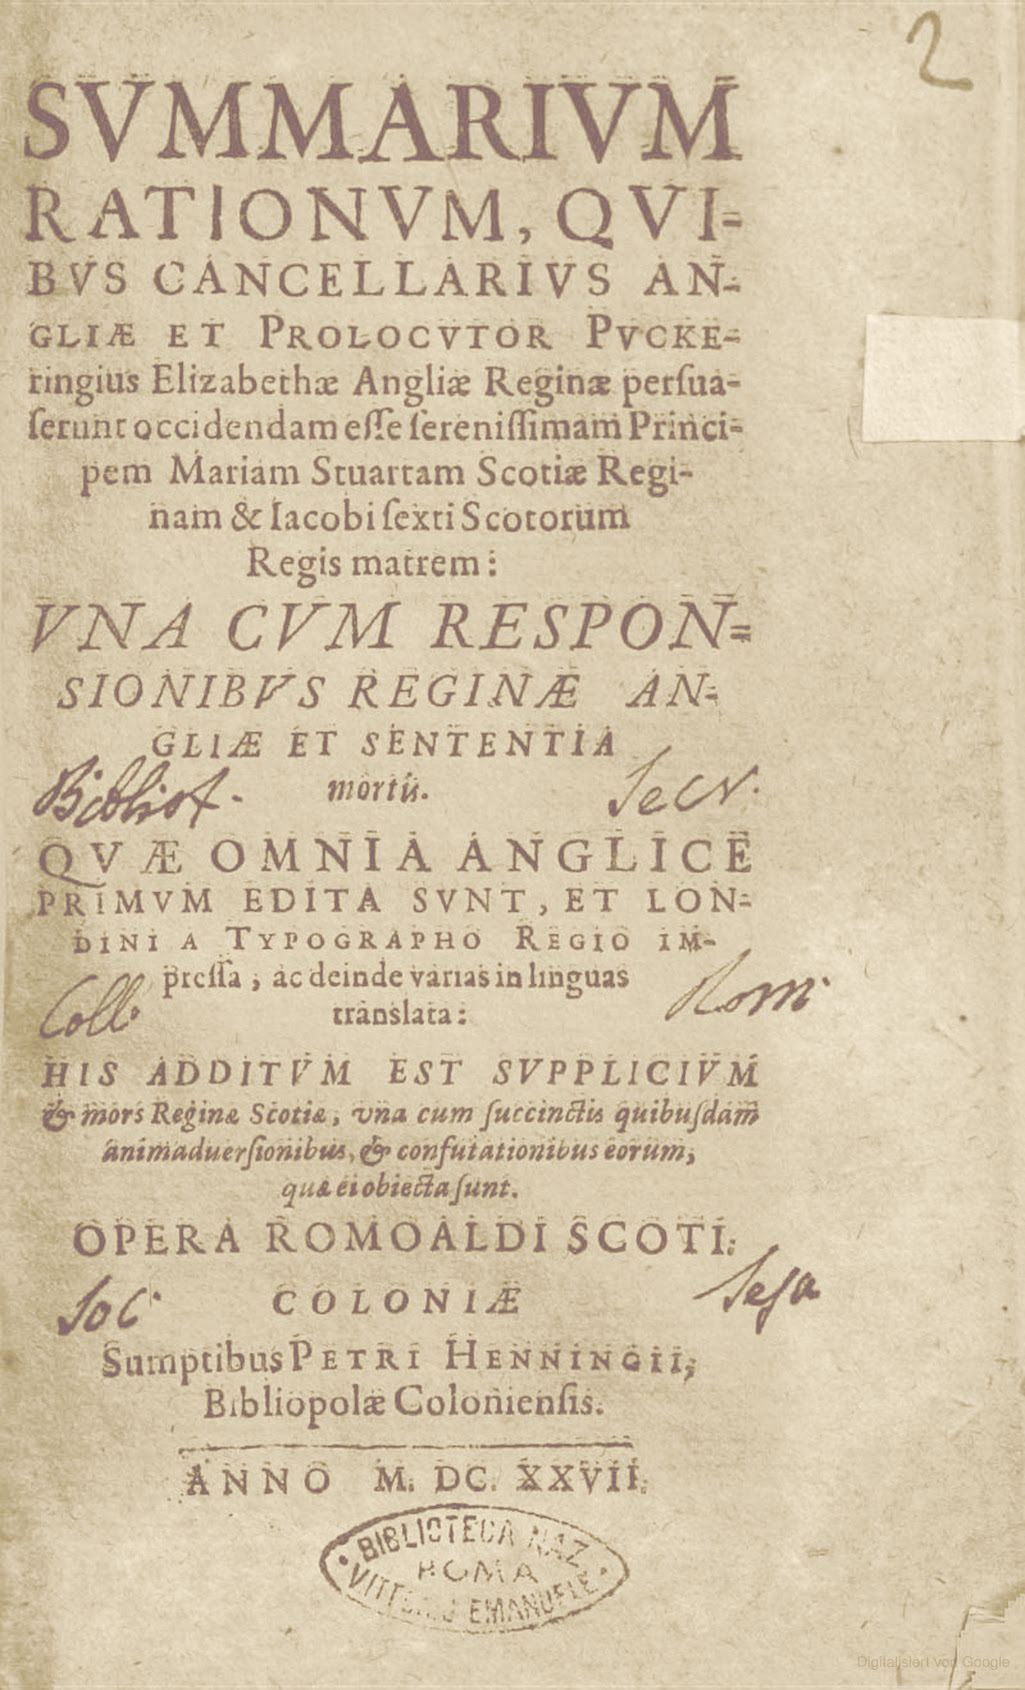 2
SVMMARIVM
RATIONVM, QVI-
BVS CANCELLARIVS AN-
GLIÆ ET PROLOCVTOR PVCKE-
ringius Elizabethæ Angliæ Reginæ persua-
serunt occidendam esse serenissimam Princi-
pem Mariam Stuartam Scotiæ Regi-
nam & Iacobi sexti Scotorum
Regis matrem:
VNA CVM RESPON-
SIONIBVS REGINÆ AN-
GLIÆ ET SENTENTIA
mortis.
Bibliot. Secr.
QVÆ OMNIA ANGLICE
PRIMVM EDITA SVNT, ET LON-
DINI A TYPOGRAPHO REGIO IM-
pressa, ac deinde varias in linguas
translata:
Coll Rom
HIS ADDITVM EST SVPPLICIVM
& mors Reginæ Scotiæ, vna cum succinctis quibusdam
animaduersionibus, & confutationibus eorum,
quæ ei obiecta sunt.
OPERA ROMOALDI SCOTI.
COLONIÆ
Soc Jesu
Sumptibus PETRI HENNINGII,
Bibliopolæ Coloniensis.
ANNO M. DC. XXVII.
BIBLIOTECA NAZ.
ROMA
VITTORIO EMANUELE
Digitalisiert von Google